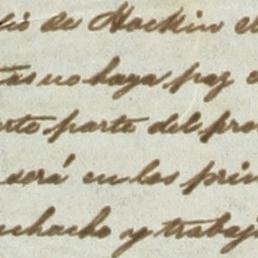 de Hockin el
no haya paz
parte del pro
será en las prin
uchacho y trabaj